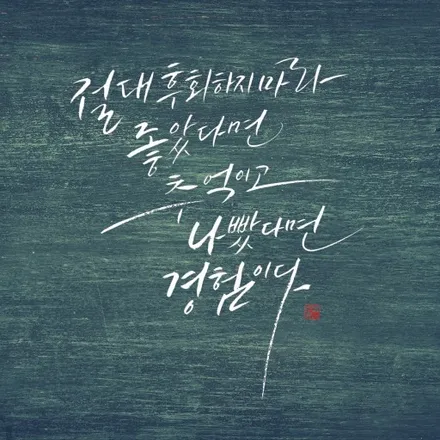 절대 후회하지마라
좋았다면
추억이고
나빴다면
경험이다.